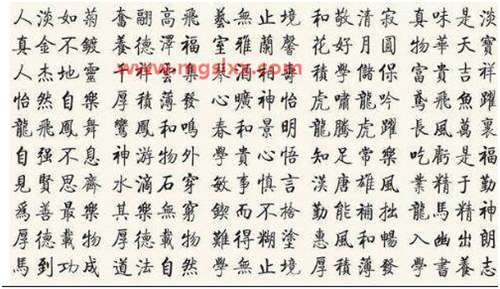 人淡如菊 奮翮高飛 藝無止境 和敬清寂 真味是淡
真金不鍍 養德澤福 室雅蘭馨 花好月圓 物華天寶
人杰地靈 雲集 積學儲保 富貴吉祥
www.mgsixx.com
怡然自樂 厚積薄發 心曠神怡 虎嘯龍吟 鳶飛魚躍
龍飛鳳舞 鸞鳳和鳴 春和景明 龍騰虎躍 長風萬裏
自强不息 神游物外 學貴心悟 知足常樂 吃虧是福
見賢思齊 水滴石穿 敏事慎言 漢唐雄風 業精于勤
爲善最樂 其樂無窮 鍥而不捨 勤能補拙 龍馬精神
厚德載物 厚德載物 難得糊塗 惠風和暢 入幽出朗
馬到功成 道法自然 學無止境 厚積薄發 學書養志